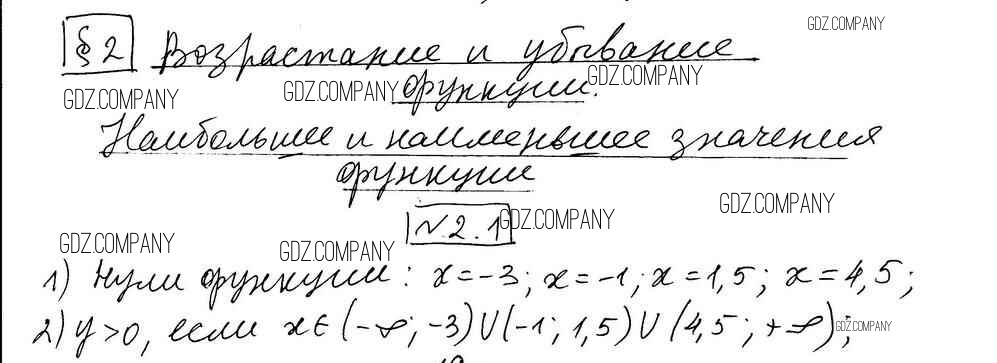 § 2 Возрастание и убывание
функции.
Наибольшее и наименьшее значения
функции
№ 2.1
1) Нули функции: x = -3; x = -1; x = 1,5; x = 4,5;
2) y > 0, если x ∈ (-∞; -3) ∪ (-1; 1,5) ∪ (4,5; +∞);
GDZ.COMPANY
GDZ.COMPANY
GDZ.COMPANY
GDZ.COMPANY
GDZ.COMPANY
GDZ.COMPANY
GDZ.COMPANY
GDZ.COMPANY
GDZ.COMPANY